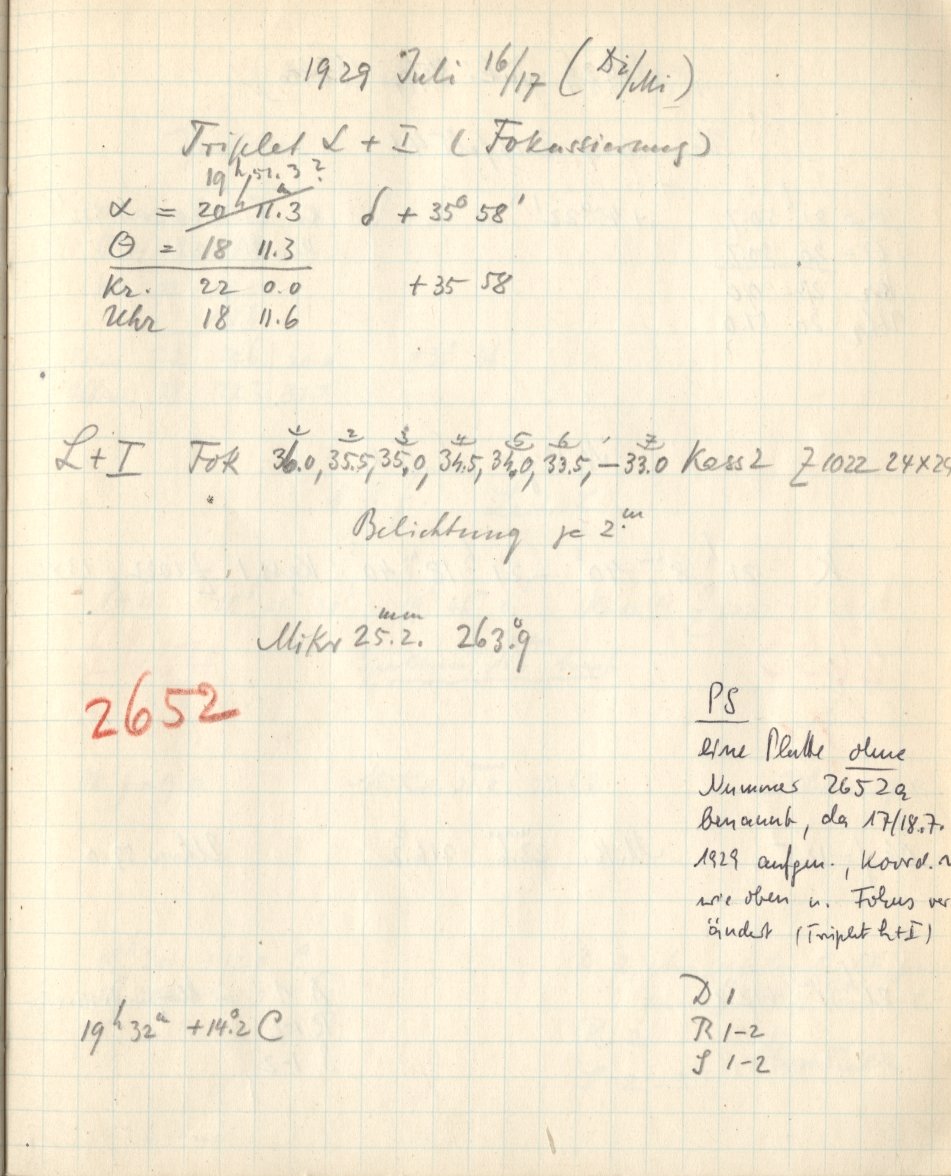 1929 Juli 16/17 (Di/Mi)
Triplet L + I (Fokussierung)
19h 51.3?
α = 20h 11.3m δ + 35° 58'
θ = 18 11.3
Kr. 22 0.0 +35 58
Uhr 18 11.6
1 2 3 4 5 6 7
L+I Fok 36.0, 35.5, 35.0, 34.5, 34.0, 33.5, – 33.0 Kass 2 Z 1022 24×2
Belichtung je 2.m
Mikr 25.2.mm 263.°9
2652
PS
eine Platte ohne
Nummer 2652a
benannt, da 17/18.7.
1929 aufgen., Koord.
wie oben u. Fokus ver
ändert (Triplet L+I)
D 1
R 1-2
S 1-2
19h 32m +14.°2 C